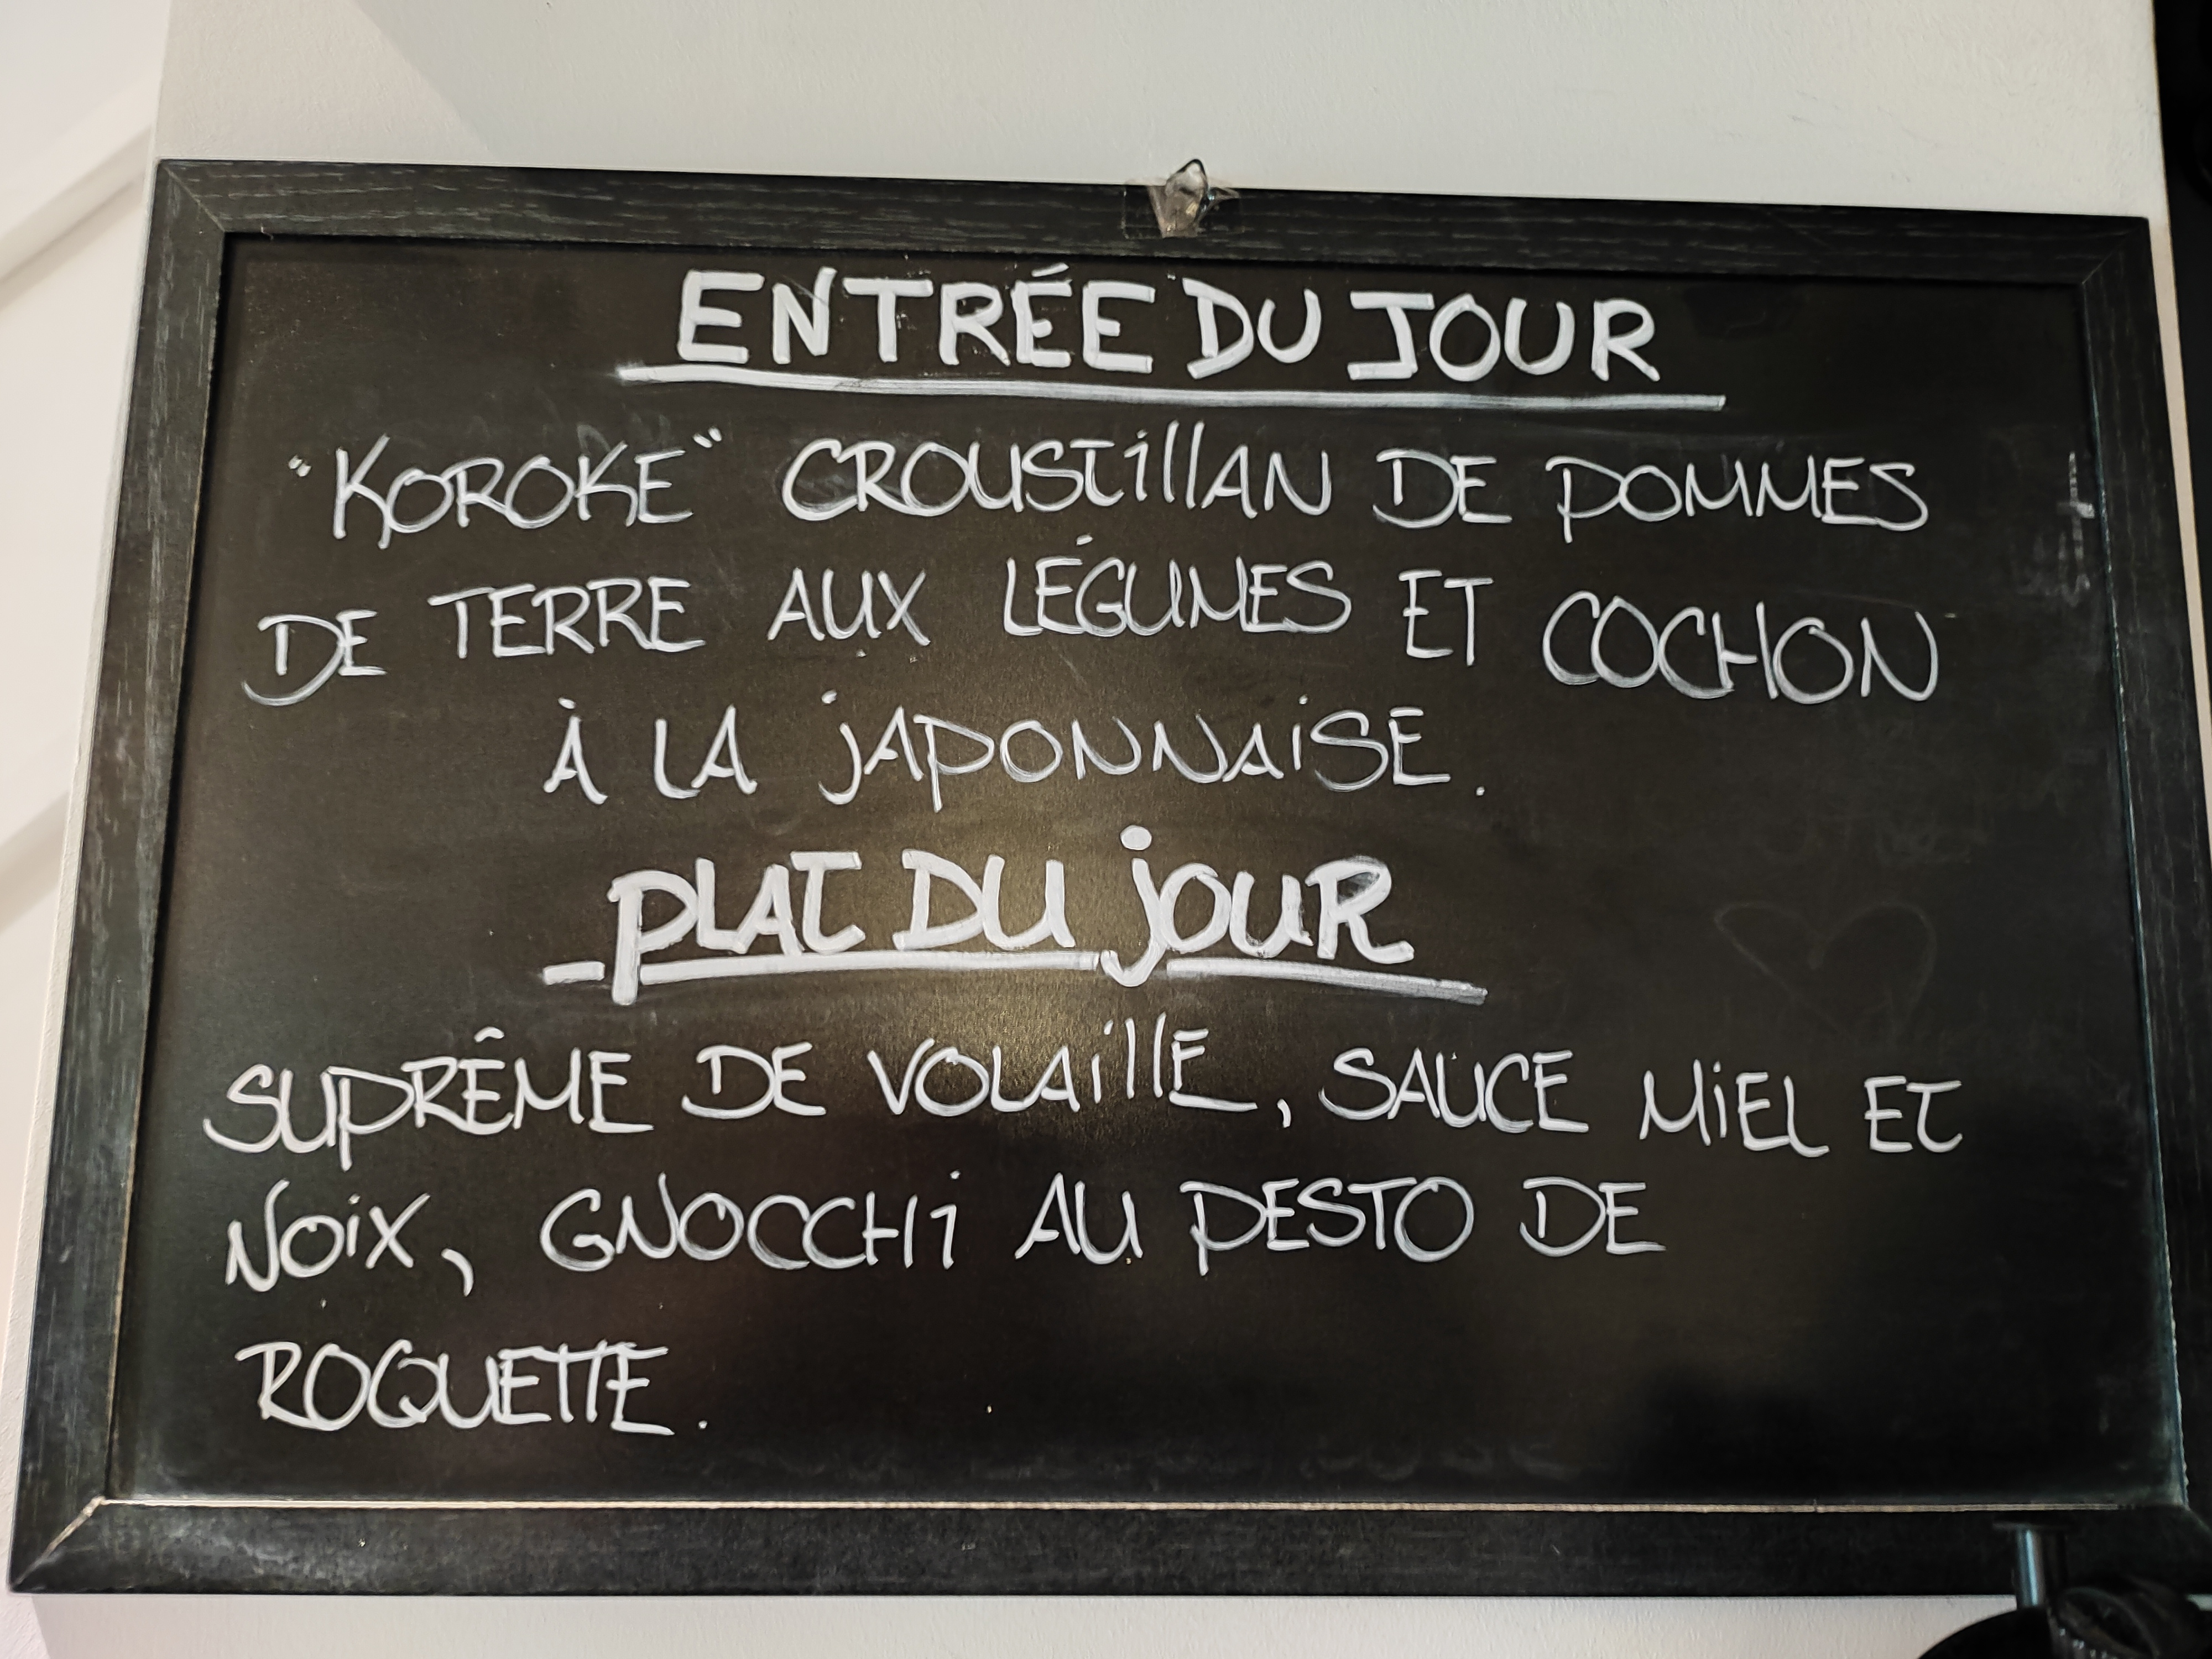 ENTRÉE DU JOUR
"KOROKE" CROUSTillAN DE POMMES
DE TERRE AUX LÉGUMES ET COCHON
À LA jAPONNAiSE.
PLAT DU jOUR
SUPRÊME DE VOLAillE, SAUCE MiEL ET
NOiX, GNOCCHi AU PESTO DE
ROQUETTE.